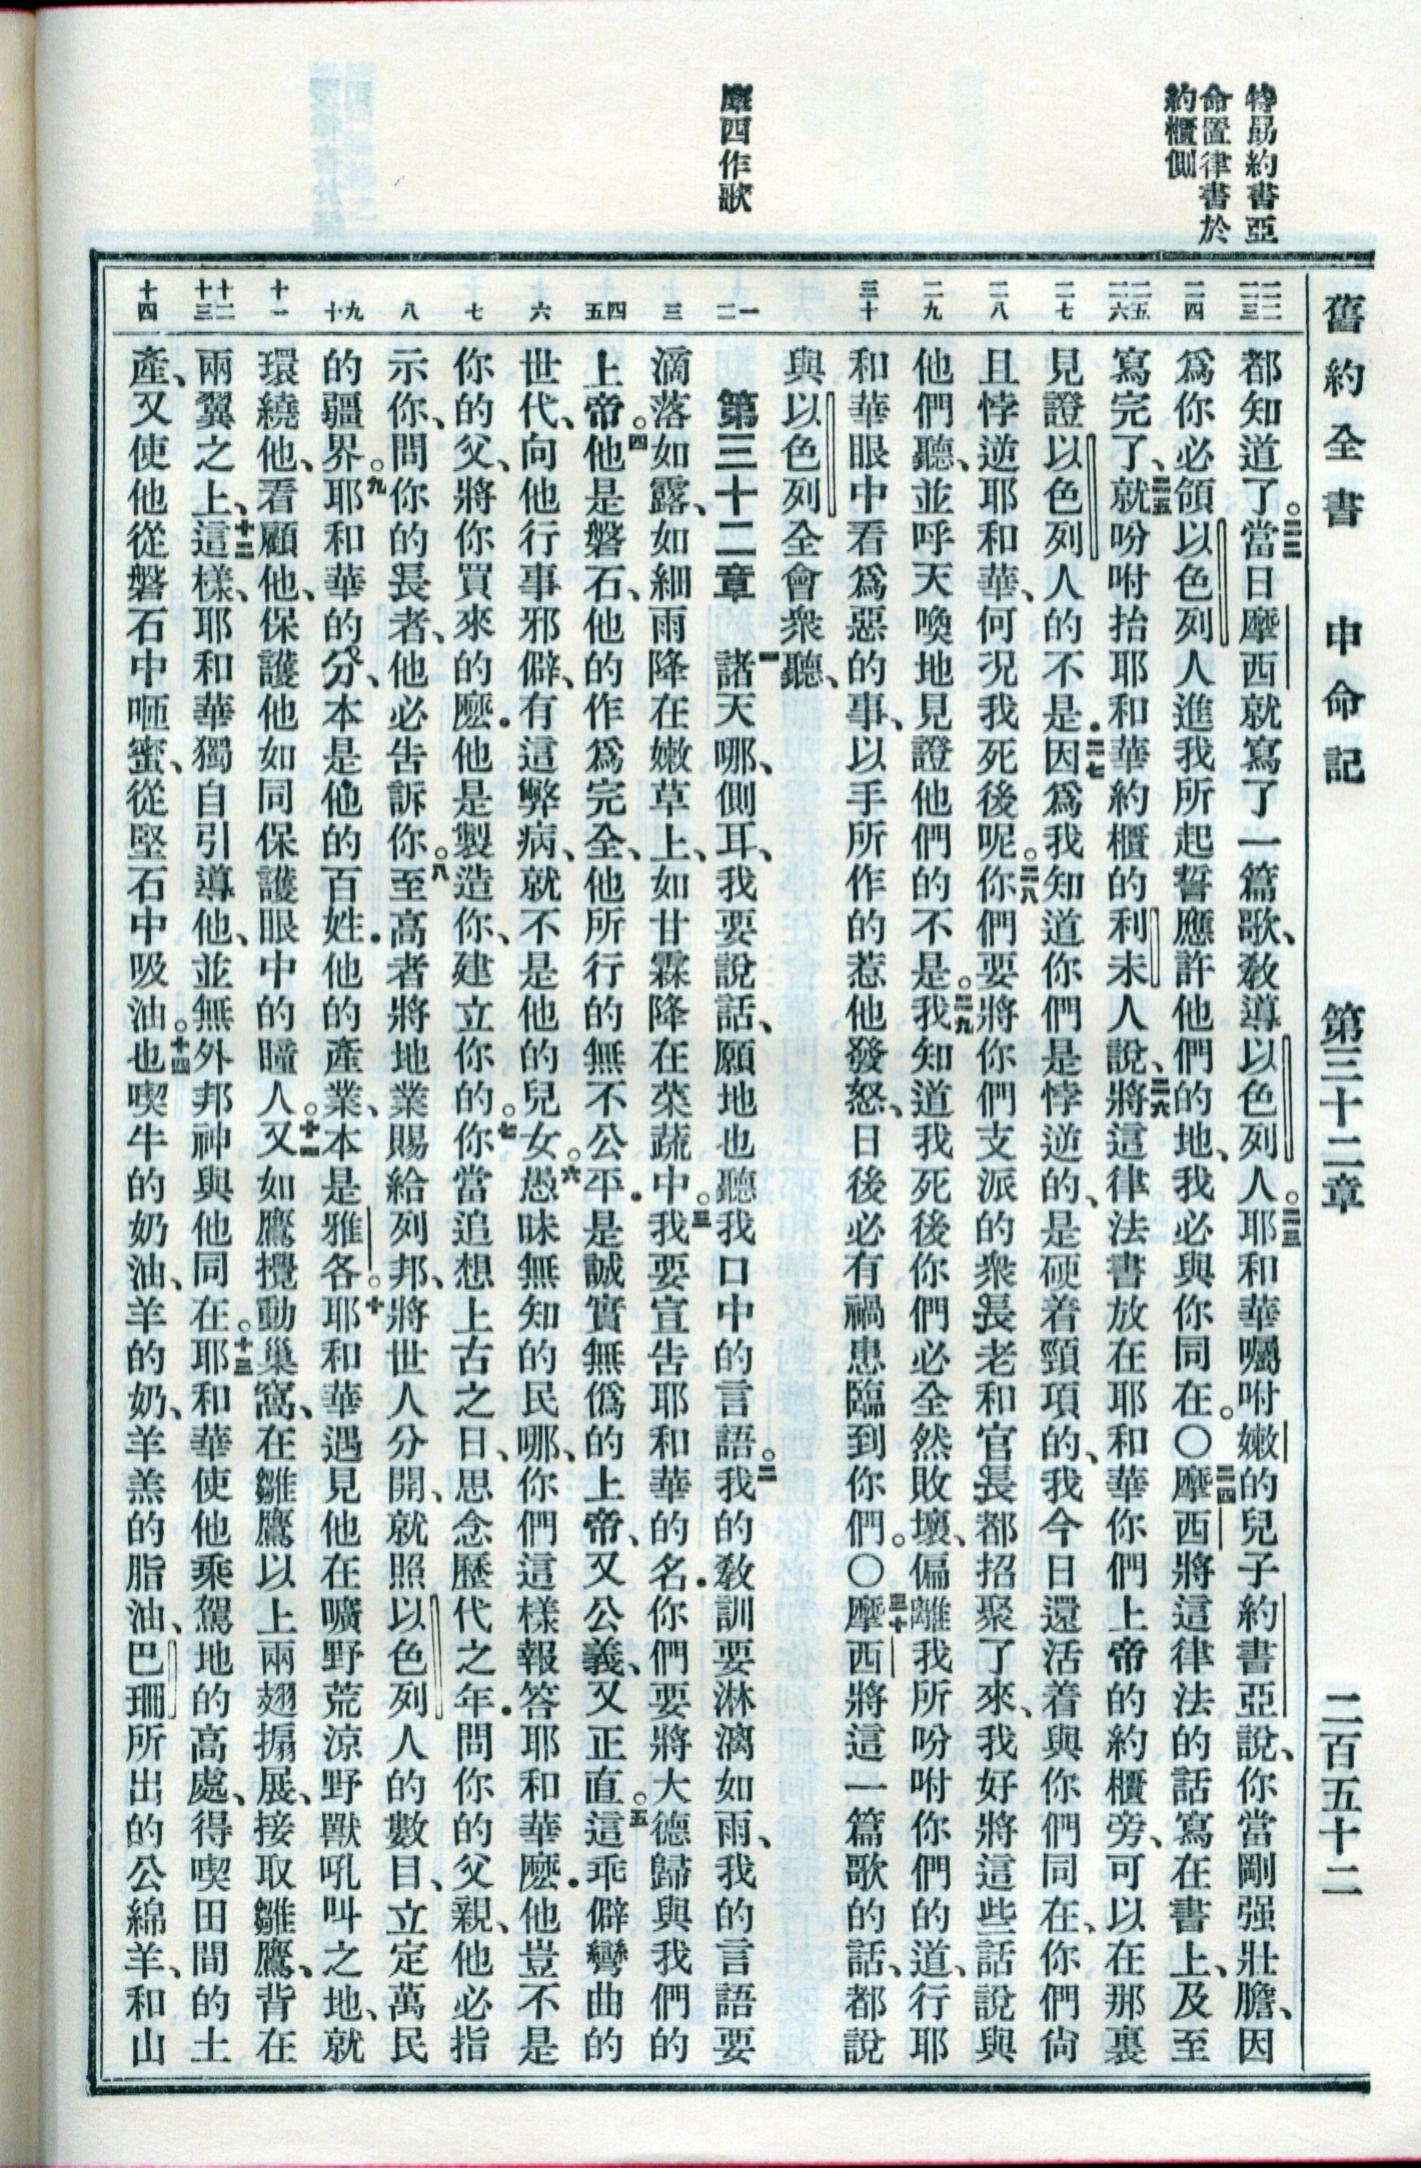 舊約全書 申命記 第三十二章 二百五十二
特爲約書亞
命置律書於
約櫃側
摩西作歌
二二 二三
二四
二五 二六
二七
二八
二九
三十
一 二
三
四 五
六
七
八
九 十
十一
十二 十三
十四
都知道了。二二當日摩西就寫了一篇歌、敎導以色列人。二三耶和華囑咐嫩的兒子約書亞說、你當剛强壯膽、因
爲你必領以色列人進我所起誓應許他們的地、我必與你同在。〇二四摩西將這律法的話寫在書上、及至
寫完了、二五就吩咐抬耶和華約櫃的利未人說、二六將這律法書放在耶和華你們上帝的約櫃旁、可以在那裏
見證以色列人的不是．二七因爲我知道你們是悖逆的、是硬着頸項的、我今日還活着與你們同在、你們尙
且悖逆耶和華、何況我死後呢。二八你們要將你們支派的衆長老和官長都招聚了來、我好將這些話說與
他們聽、並呼天喚地見證他們的不是。二九我知道我死後你們必全然敗壞、偏離我所吩咐你們的道、行耶
和華眼中看爲惡的事、以手所作的惹他發怒、日後必有禍患臨到你們。〇三十摩西將這一篇歌的話、都說
與以色列全會衆聽、
第三十二章 一諸天哪、側耳、我要說話、願地也聽我口中的言語。二我的敎訓要淋漓如雨、我的言語要
滴落如露、如細雨降在嫩草上、如甘霖降在菜蔬中。三我要宣告耶和華的名．你們要將大德歸與我們的
上帝。四他是磐石、他的作爲完全、他所行的無不公平．是誠實無僞的上帝、又公義、又正直。五這乖僻彎曲的
世代、向他行事邪僻、有這弊病、就不是他的兒女。六愚昧無知的民哪、你們這樣報答耶和華麼．他豈不是
你的父、將你買來的麼．他是製造你、建立你的。七你當追想上古之日、思念歷代之年．問你的父親、他必指
示你、問你的長者、他必告訴你。八至高者將地業賜給列邦、將世人分開、就照以色列人的數目、立定萬民
的疆界。九耶和華的分、本是他的百姓．他的產業、本是雅各。十耶和華遇見他在曠野荒涼野獸吼叫之地、就
環繞他、看顧他、保護他如同保護眼中的瞳人。十一又如鷹攪動巢窩、在雛鷹以上兩翅搧展、接取雛鷹、背在
兩翼之上、十二這樣、耶和華獨自引導他、並無外邦神與他同在。十三耶和華使他乘駕地的高處、得喫田間的土
產、又使他從磐石中咂蜜、從堅石中吸油。十四也喫牛的奶油、羊的奶、羊羔的脂油、巴珊所出的公綿羊、和山